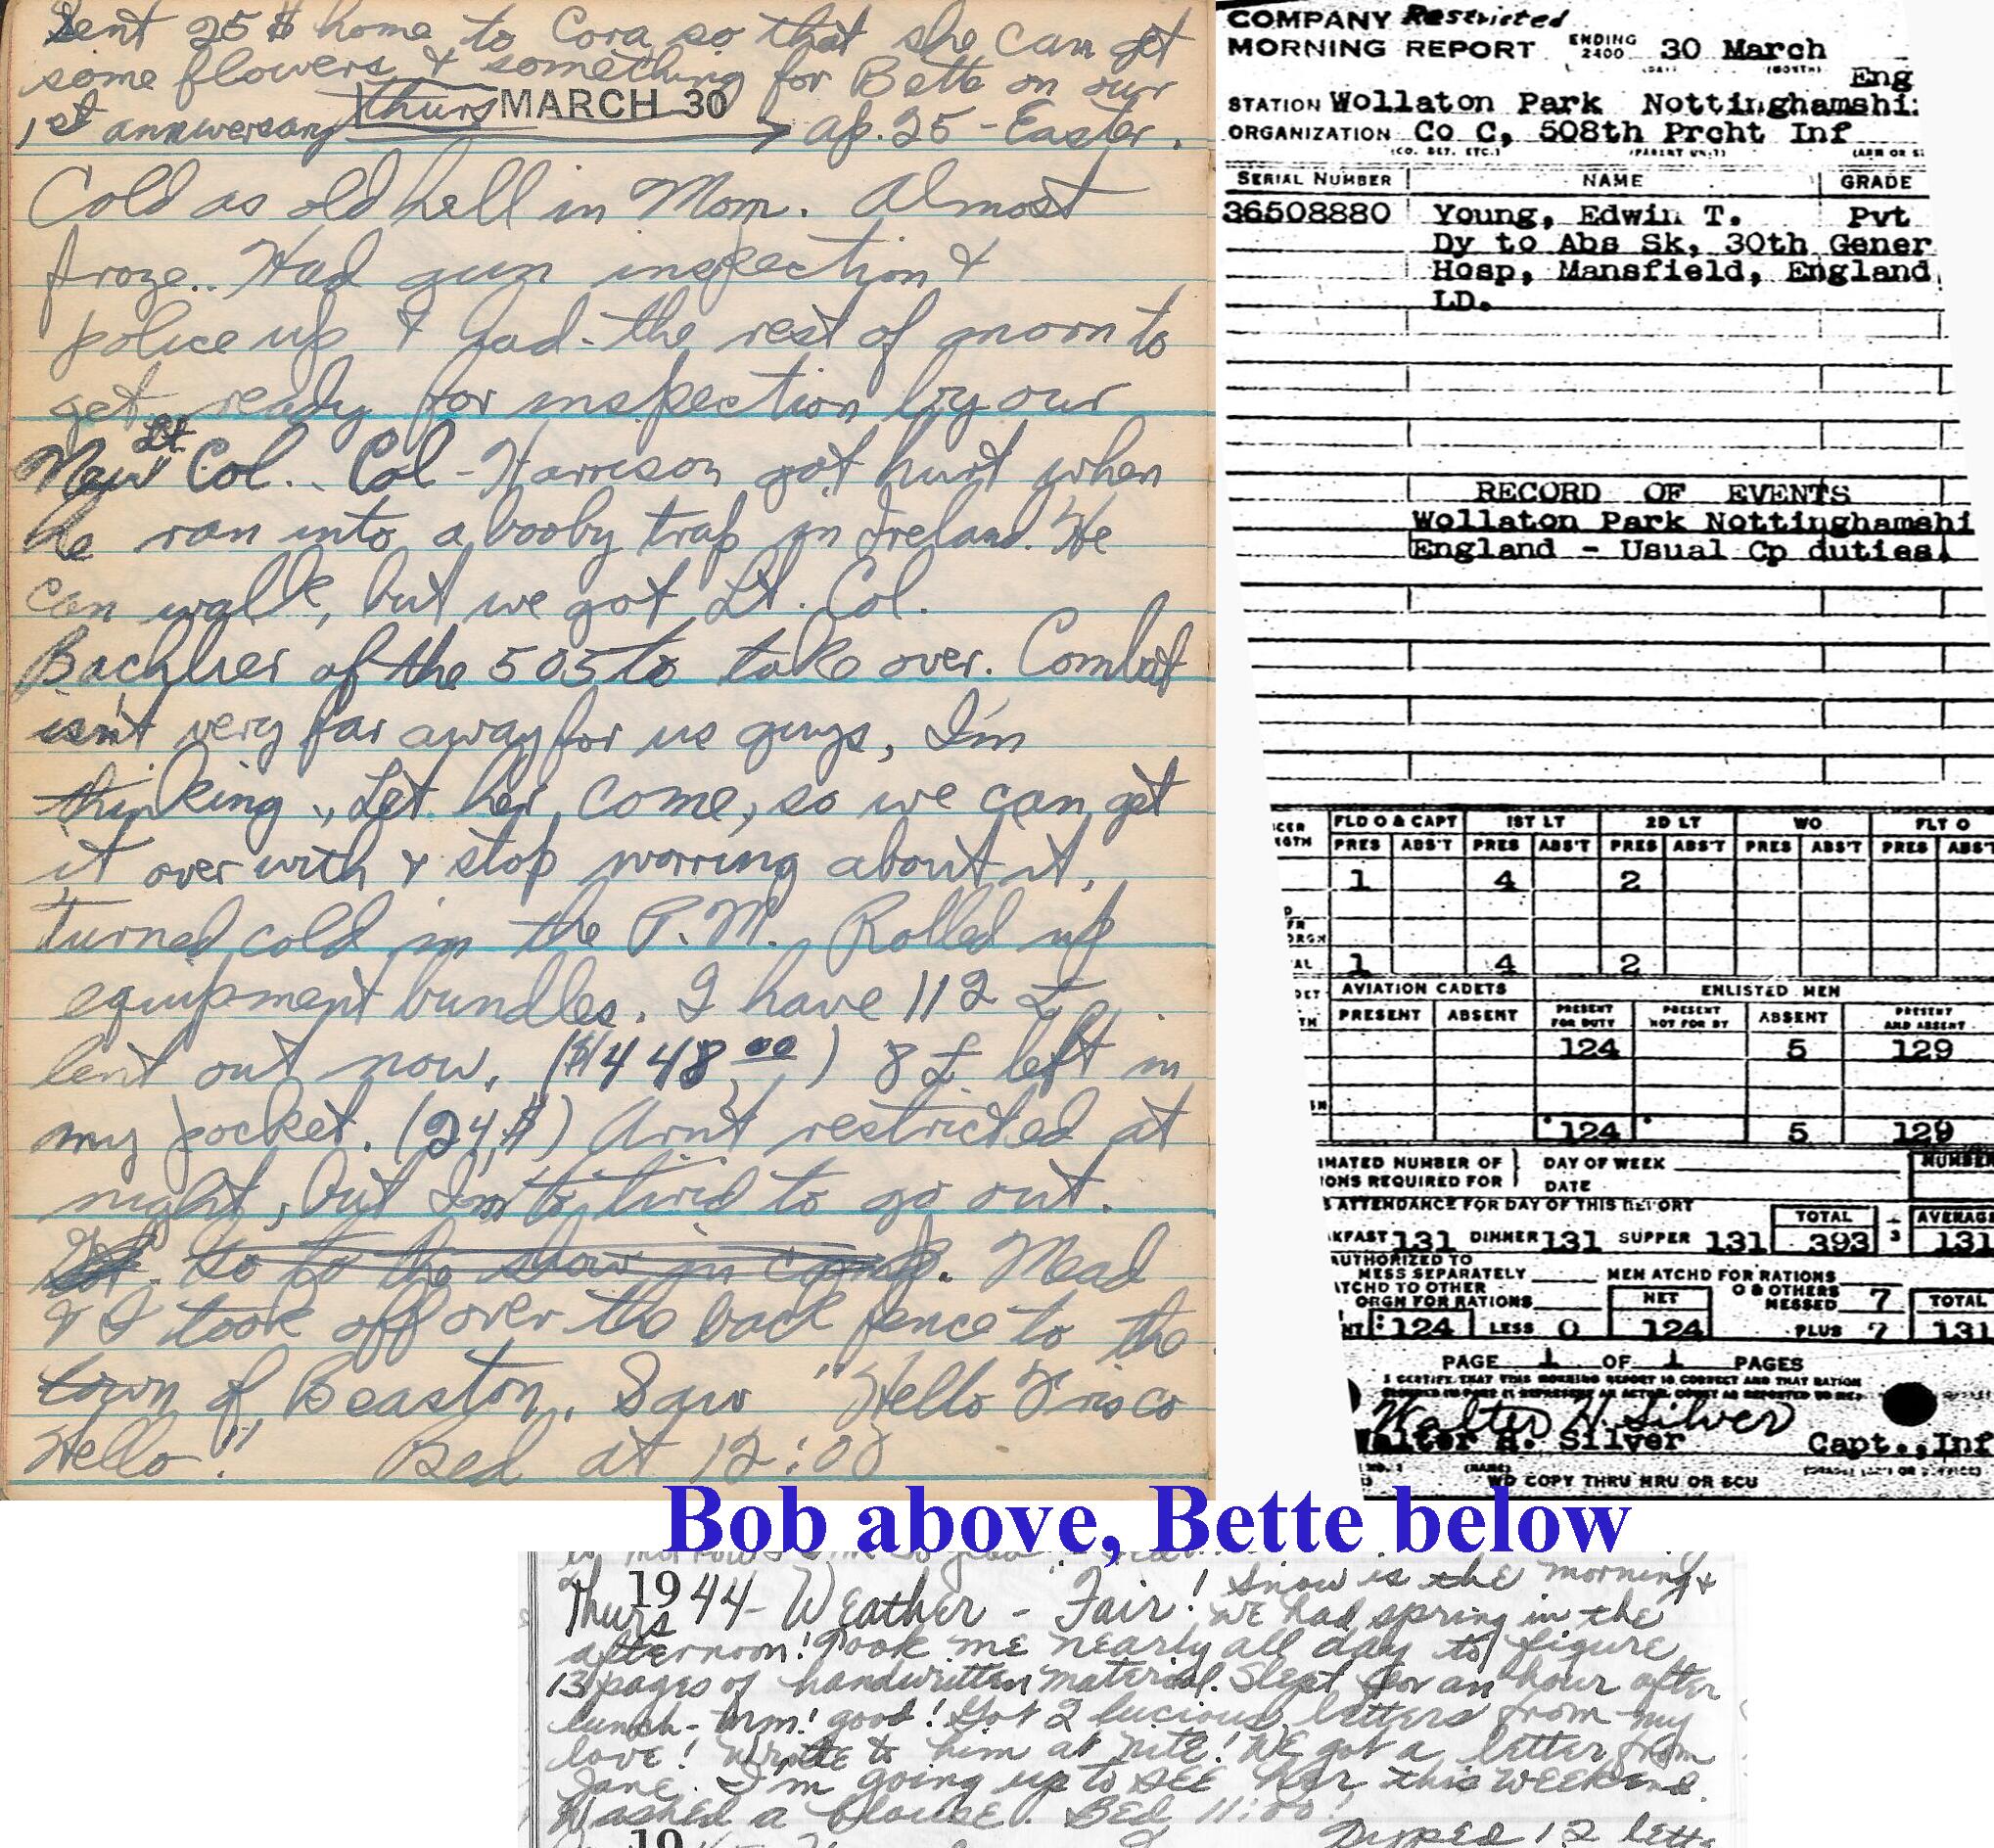 Sent 25 $ home to Cora so that she can get
some flowers & something for Bette on our
1st anniversary Thurs MARCH 30 → Ap. 25 - Easter.
Cold as old hell in Morn. Almost
froze.. Had gun inspection &
police up & had the rest of morn to
get ready for inspection by our
New Lt Col.. Col - Harrison got hurt when
he ran into a booby trap in Ireland. He
can walk, but we got Lt. Col.
of the 505 to take over. Combat
isn't very far away for us guys, I'm
thinking. Let her come, so we can get
it over with & stop worring about it.
Turned cold in the P.M. Rolled up
equipment bundles. I have 112 £
lent out now. ($448.00) 8 £ left in
my pocket. (24,$) Arn't restricted at
night, but I'm to tired to go out.
Go to the show in camp. Mead
& I took off over the back fence to the
town of Beaston. Saw "Hello Frisco
Hello" Bed at 12:00
COMPANY Restricted
MORNING REPORT ENDING 2400 30 March
(DAY) (MONTH)
Eng
STATION Wollaton Park Nottinghamshi
ORGANIZATION Co C, 508th Prcht Inf
(CO. DET. ETC.) (PARENT UNIT) (ARM OR S
SERIAL NUMBER NAME GRADE
36508880 Young, Edwin T. Pvt
Dy to Abs Sk, 30th Gener
Hosp, Mansfield, England
LD.
RECORD OF EVENTS
Wollaton Park Nottinghamshi
England - Usual Cp duties.
FLD O & CAPT 1ST LT 2D LT WO FLT O
PRES ABS'T PRES ABS'T PRES ABS'T PRES ABS'T PRES ABS'T
1 4 2
1 4 2
AVIATION CADETS ENLISTED MEN
PRESENT ABSENT PRESENT FOR DUTY PRESENT NOT FOR DY ABSENT PRESENT AND ABSENT
124 5 129
124 5 129
MATED NUMBER OF DAY OF WEEK NUMBER
IONS REQUIRED FOR DATE
ATTENDANCE FOR DAY OF THIS REPORT
TOTAL AVERAGE
KFAST 131 DINNER 131 SUPPER 131 393 ÷ 3 131
AUTHORIZED TO
MESS SEPARATELY MEN ATCHD FOR RATIONS
ATCHD TO OTHER O & OTHERS
ORGN FOR RATIONS NET MESSED 7 TOTAL
124 LESS 0 124 PLUS 7 131
PAGE 1 OF 1 PAGES
I CERTIFY THAT THIS MORNING REPORT IS CORRECT AND THAT RATION
Walter H. Silver
Walter H. Silver Capt., Inf
(NAME)
WD COPY THRU MRU OR SCU
Bob above, Bette below
Thurs 1944 - Weather - Fair! Snow is the morning &
we had spring in the
afternoon! Took me nearly all day to figure
13 pages of handwritten material. Slept for an hour after
lunch - mm! good! Got 2 lucious letters from my
love! Wrote to him at nite! We got a letter from
Jane. I'm going up to see her, this weekend.
Washed a blouse. Bed 11:00!
19
12